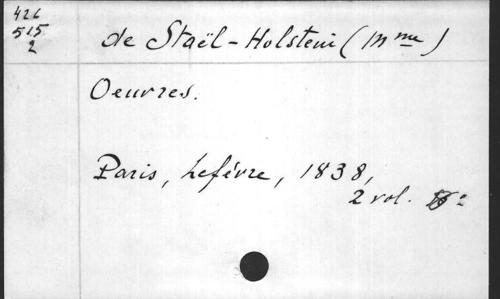 426
515
2
de Staël-Holstein (Mme)
Oeuvres.
Paris, Lefévre, 1838,
2 vol.